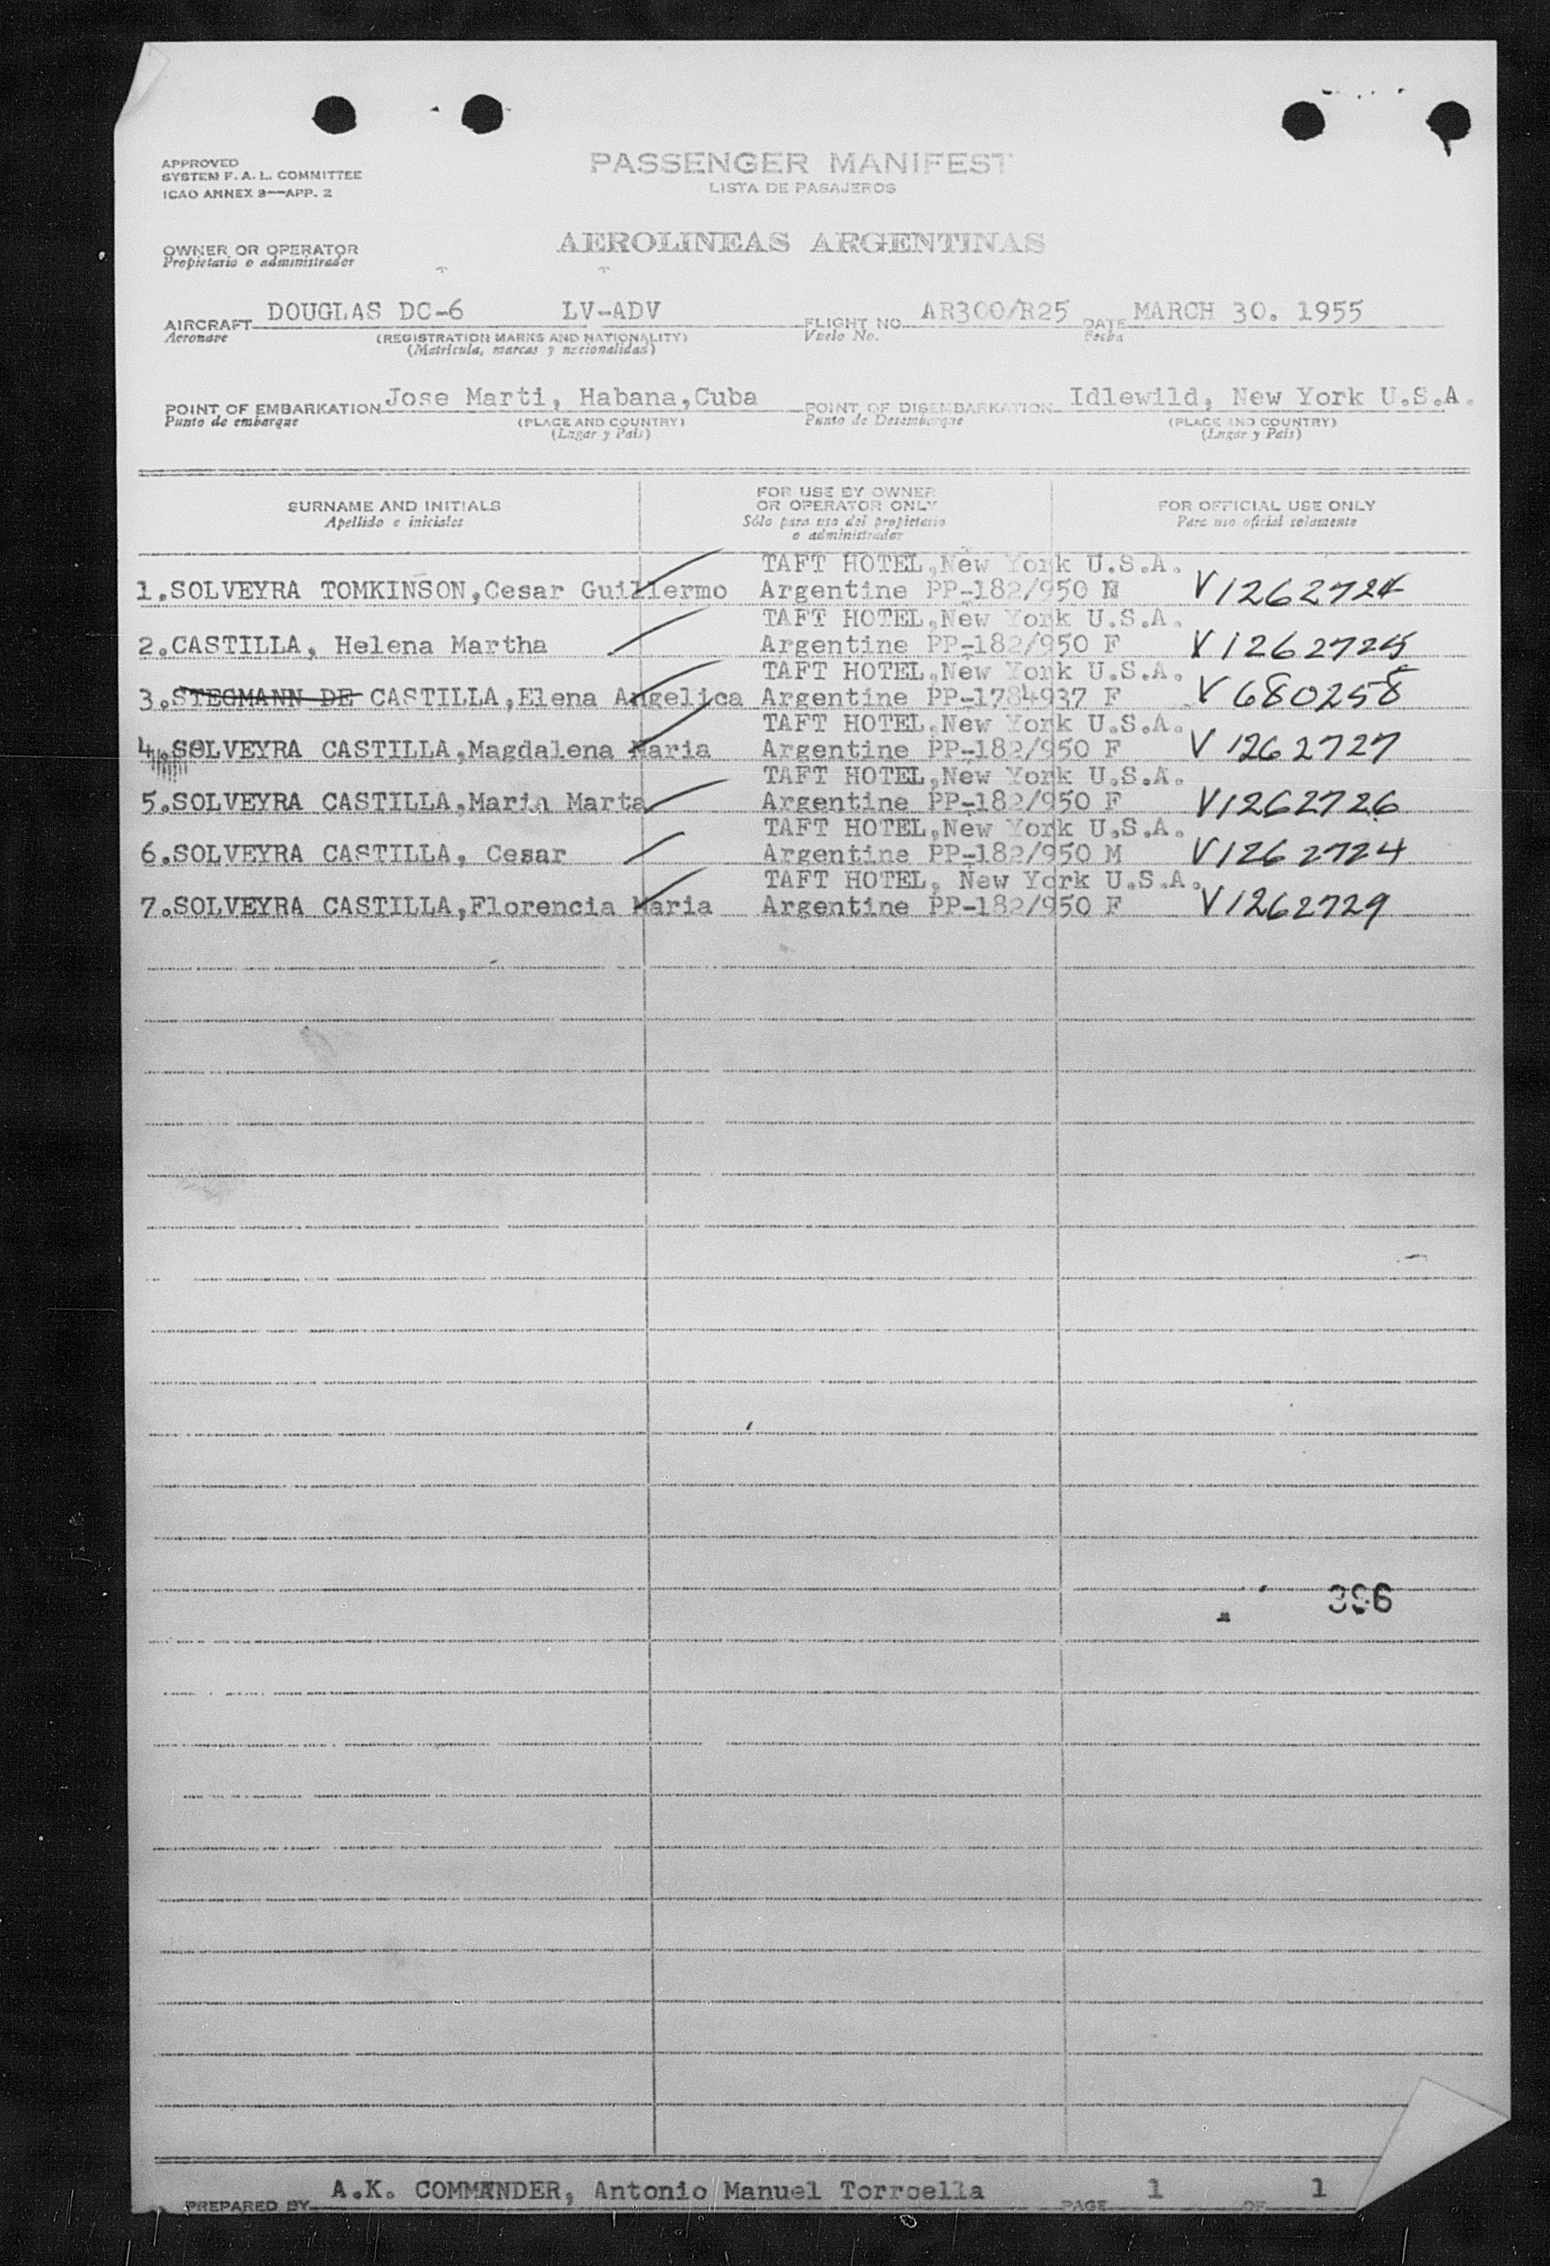 APPROVED
SYSTEM F. A. L. COMMITTEE
ICAO ANNEX 9—APP. 2
PASSENGER MANIFEST
LISTA DE PASAJEROS
OWNER OR OPERATOR
Propietario o administrador
AEROLINEAS ARGENTINAS
AIRCRAFT DOUGLAS DC-6 LV-ADV FLIGHT NO. AR300/R25 DATE MARCH 30. 1955
Aeronave (REGISTRATION MARKS AND NATIONALITY) Vuelo No. Fecha
(Matrícula, marcas y nacionalidad)
POINT OF EMBARKATION Jose Marti, Habana,Cuba POINT OF DISEMBARKATION Idlewild, New York U.S.A.
Punto de embarque (PLACE AND COUNTRY) Punto de Desembarque (PLACE AND COUNTRY)
(Lugar y País) (Lugar y País)
SURNAME AND INITIALS
Apellido e iniciales
FOR USE BY OWNER
OR OPERATOR ONLY
Sólo para uso del propietario
o administrador
FOR OFFICIAL USE ONLY
Para uso oficial solamente
TAFT HOTEL,New York U.S.A.
1.SOLVEYRA TOMKINSON,Cesar Guillermo Argentine PP-182/950 M V1262724
TAFT HOTEL,New York U.S.A.
2.CASTILLA, Helena Martha Argentine PP-182/950 F V1262725
TAFT HOTEL,New York U.S.A.
3.STEGMANN DE CASTILLA,Elena Angelica Argentine PP-1784937 F V680258
TAFT HOTEL,New York U.S.A.
4.SOLVEYRA CASTILLA,Magdalena Maria Argentine PP-182/950 F V1262727
TAFT HOTEL,New York U.S.A.
5.SOLVEYRA CASTILLA,Maria Marta Argentine PP-182/950 F V1262726
TAFT HOTEL,New York U.S.A.
6.SOLVEYRA CASTILLA, Cesar Argentine PP-182/950 M V1262724
TAFT HOTEL, New York U.S.A.
7.SOLVEYRA CASTILLA,Florencia Maria Argentine PP-182/950 F V1262729
396
PREPARED BY A.K. COMMANDER, Antonio Manuel Torroella PAGE 1 OF 1